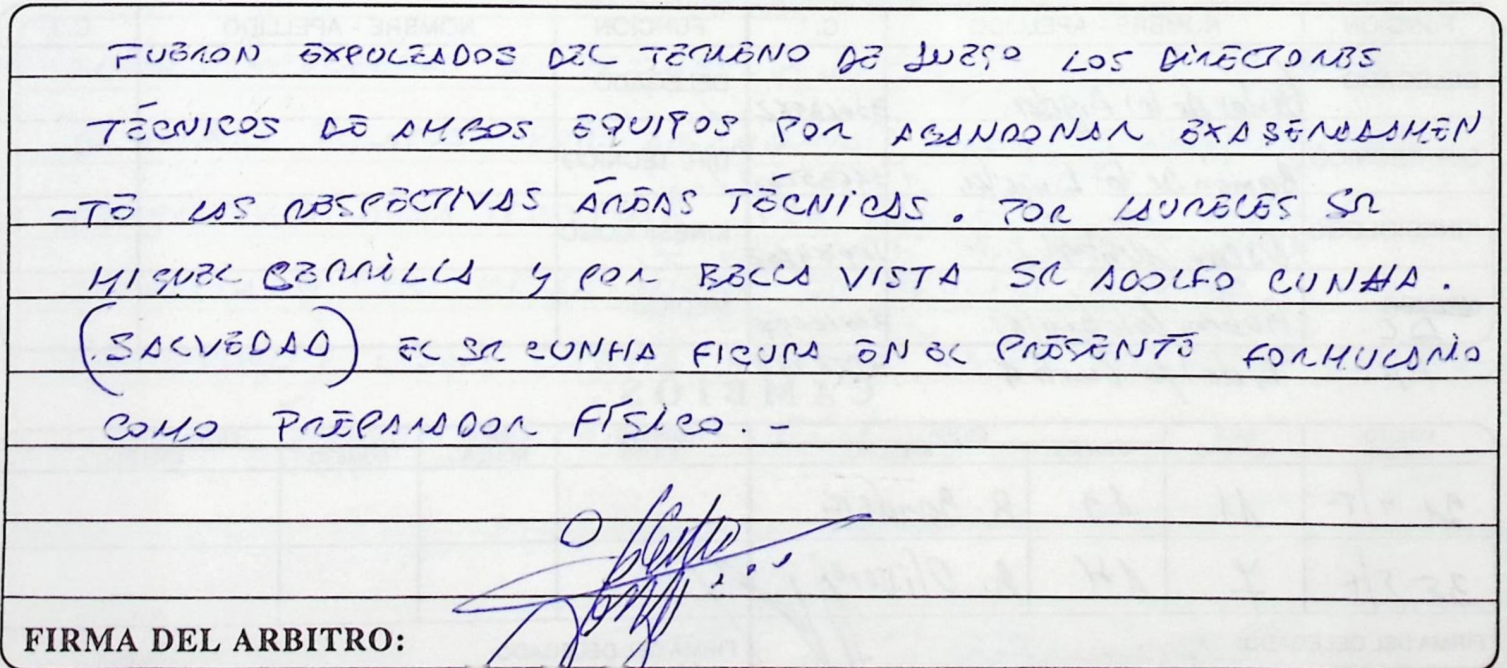 FUERON EXPULZADOS DEL TERRENO DE JUEGO LOS DIRECTORES
TÉCNICOS DE AMBOS EQUIPOS POR ABANDONAR EXAGERADAMEN
-TE LAS RESPECTIVAS ÁREAS TÉCNICAS. POR LAURELES SR
MIGUEL BERRILLA Y POR BELLA VISTA SR ADOLFO CUNHA.
(SALVEDAD) EL SR CUNHA FIGURA EN EL PRESENTE FORMULARIO
COMO PREPARADOR FÍSICO. -
FIRMA DEL ARBITRO: